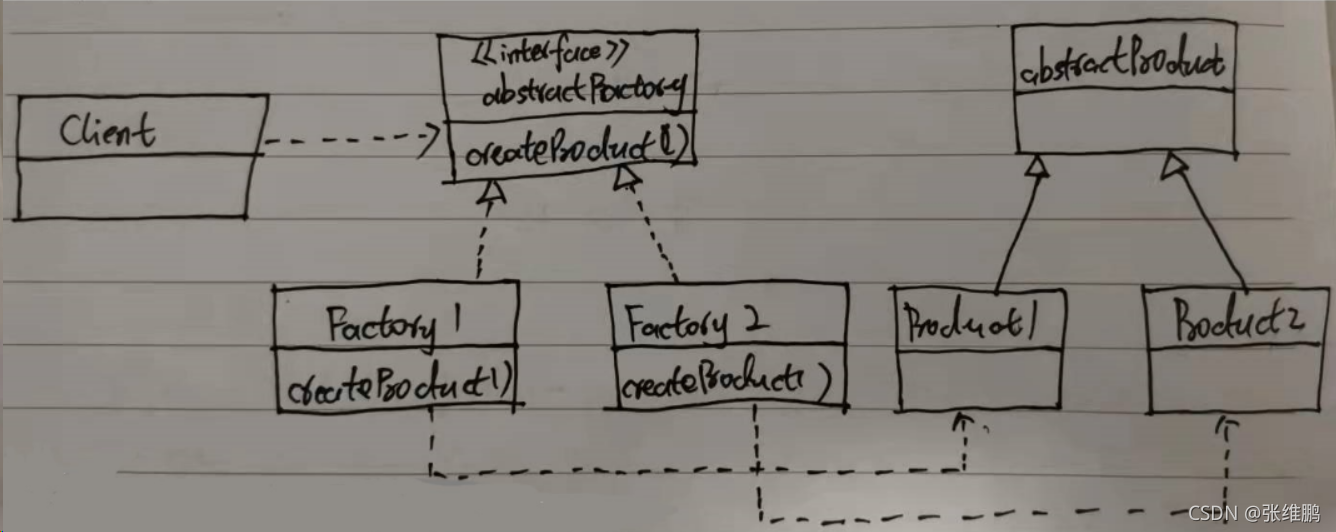 <<interface>>
abstractFactory
createProduct()
abstractProduct
Client
Factory 1
createProduct()
Factory 2
createProduct()
Product1
Product2
CSDN @张维鹏